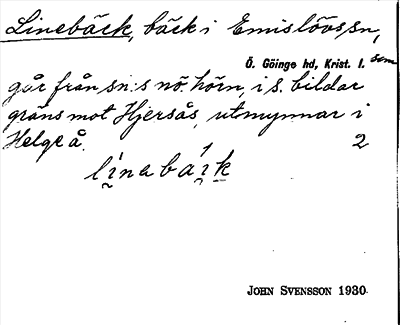 Linebäck, bäck i Emislövs sn,
Ö. Göinge hd, Krist. l. som
går från sn:s nö. hörn, i s. bildar
gräns mot Hjersås, utmynnar i
Helge å. 2
JOHN SVENSSON 1930.